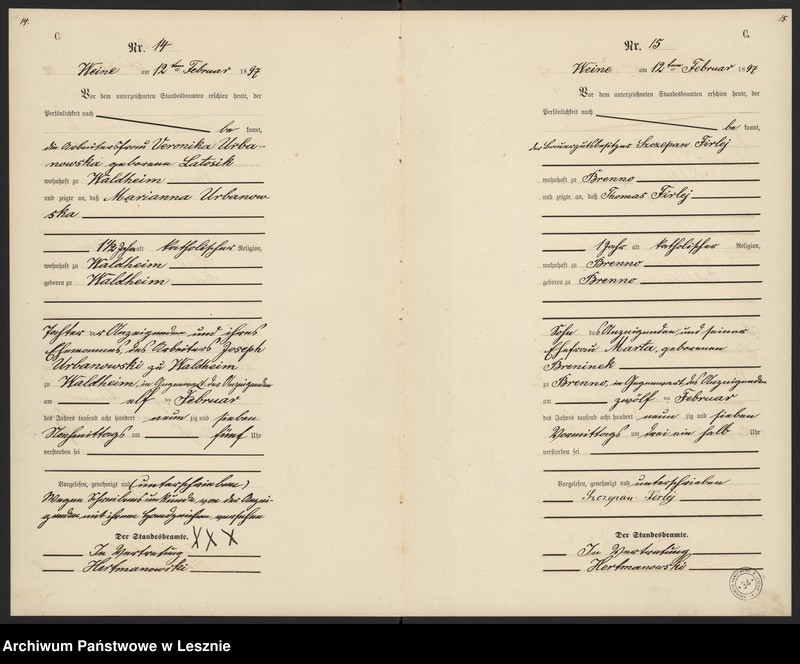 14.
C.
Nr. 14
Weine am 12ten Februar 1897
Vor dem unterzeichneten Standesbeamten erschien heute, der
Persönlichkeit nach
be kannt,
die Arbeiterfrau Veronika Urba-
nowska geborene Latosik
wohnhaft zu Waldheim
und zeigte an, daß Marianna Urbanow
ska
1 1/2 Jahr alt katholischer Religion,
wohnhaft zu Waldheim
geboren zu Waldheim
Tochter der Anzeigenden und ihres
Ehemannes, des Arbeiters Joseph
Urbanowski zu Waldheim
zu Waldheim, in Gegenwart der Anzeigenden
am elf ten Februar
des Jahres tausend acht hundert neun zig und sieben
Nachmittags um fünf Uhr
verstorben sei
Vorgelesen, genehmigt und (unterschrieben)
Wegen Schreibensunkunde von der Anzei-
genden mit ihrem Handzeichen versehen
XXX
Der Standesbeamte.
In Vertretung
Hertmanowski
15.
C.
Nr. 15
Weine am 12ten Februar 1897
Vor dem unterzeichneten Standesbeamten erschien heute, der
Persönlichkeit nach
be kannt,
der Bauergutsbesitzer Szczepan Firlej
wohnhaft zu Brenno
und zeigte an, daß Thomas Firlej
1 Jahr alt katholischer Religion,
wohnhaft zu Brenno
geboren zu Brenno
Sohn des Anzeigenden und seiner
Ehefrau Marta, geborenen
Breninek
zu Brenno, in Gegenwart des Anzeigenden
am zwölf ten Februar
des Jahres tausend acht hundert neun zig und sieben
Vormittags um drei ein halb Uhr
verstorben sei
Vorgelesen, genehmigt und unterschrieben
Szczepan Ferlej
Der Standesbeamte.
In Vertretung
Hertmanowski
34
Archiwum Państwowe w Lesznie